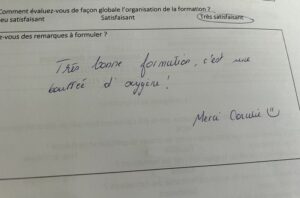 Comment évaluez-vous de façon globale l'organisation de la formation ?
eu satisfaisant Satisfaisant Très satisfaisant
e-vous des remarques à formuler ?
Très bonne formation, c'est une
bouffée d'oxygène !
Merci Coralie